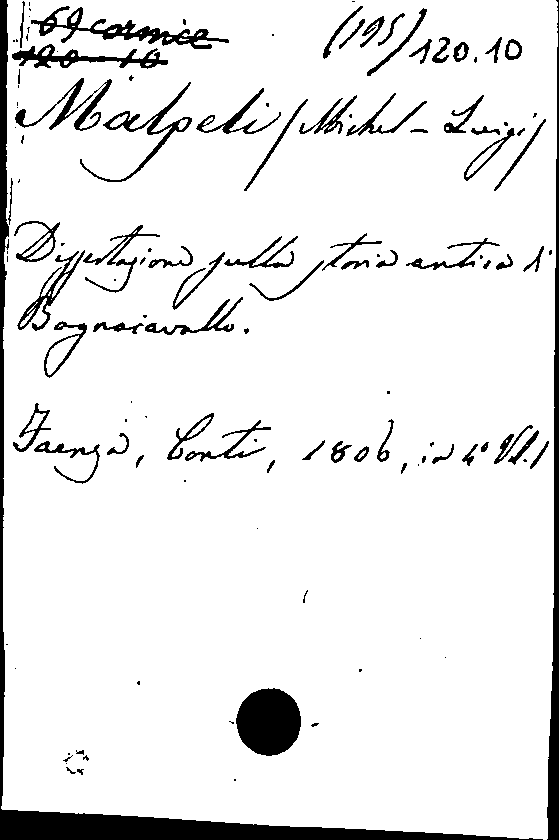 69 cornice (195) 120.10
120-10
Malpeli /Michel-Luigi/
Dissertazione sulla storia antica di
Bagnacavallo.
Faenza, Conti, 1806, in 4° Vol. 1